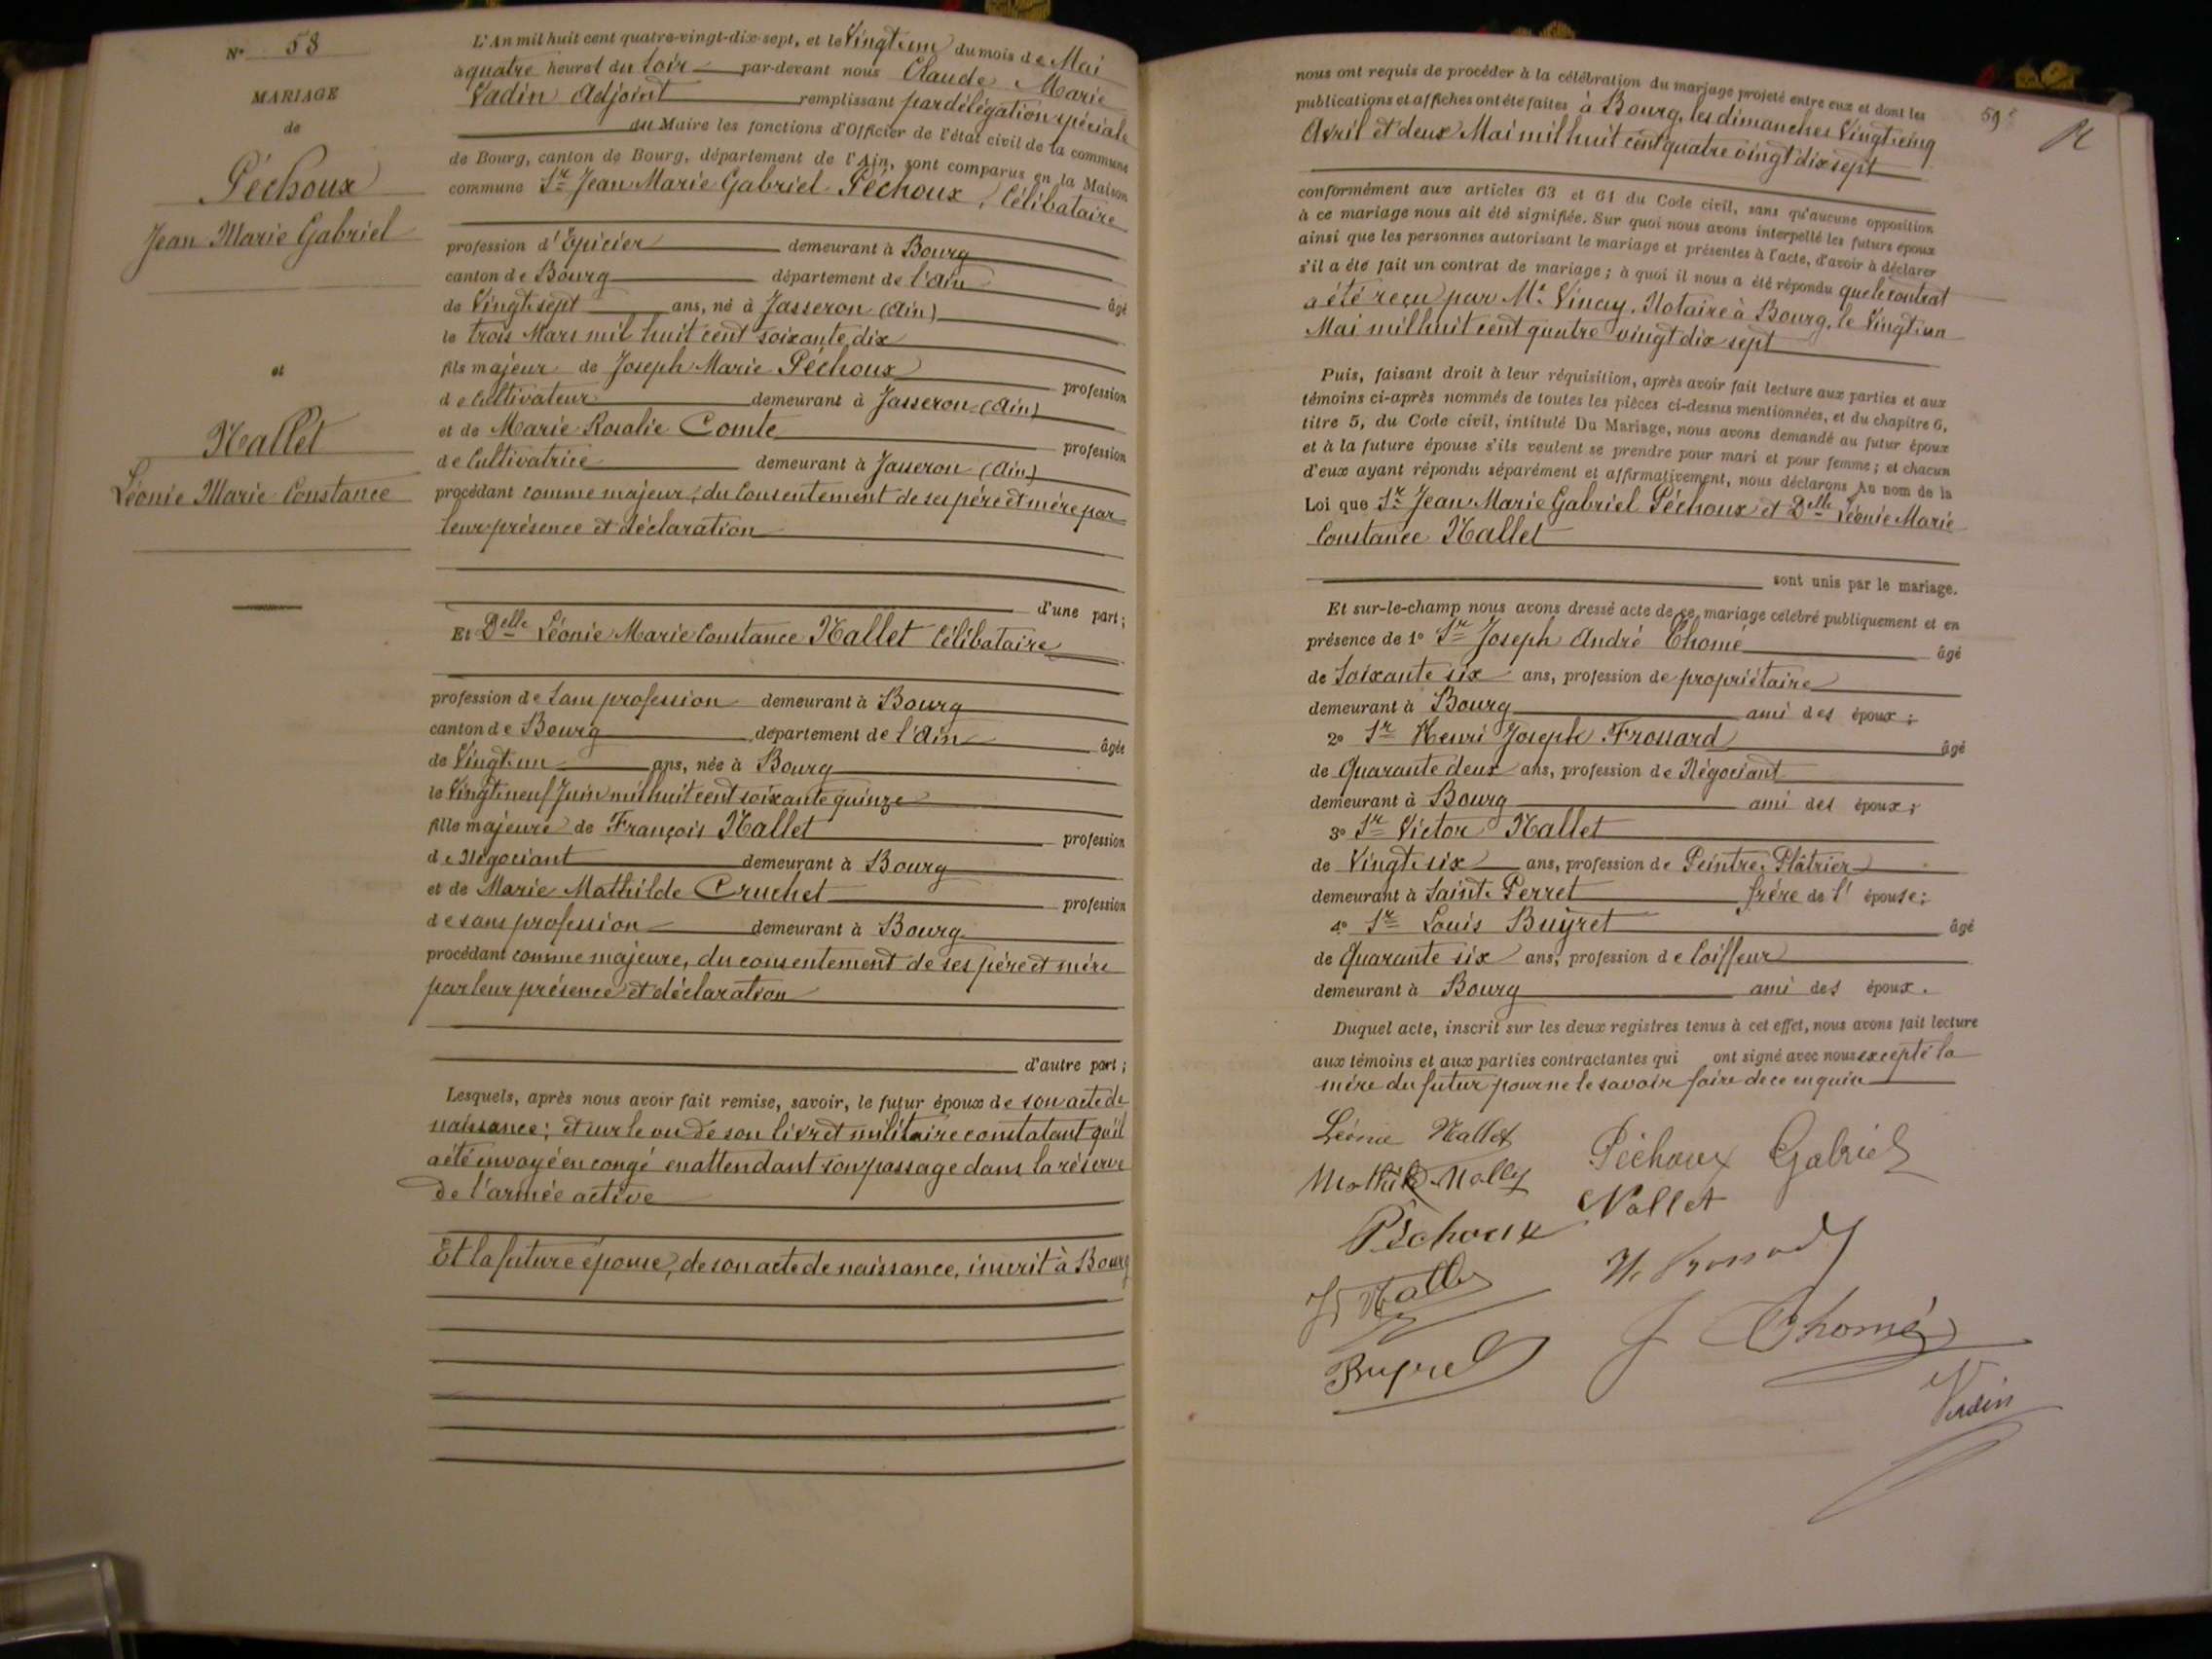 N° 58
MARIAGE
de
Péchoux
Jean Marie Gabriel
et
Nallet
Léonie Marie Constance
L'An mil huit cent quatre-vingt-dix-sept, et le Vingt-un du mois de Mai
à quatre heures du soir par-devant nous Claude Marie
Vadin Adjoint remplissant par délégation spéciale
du Maire les fonctions d'Officier de l'état civil de la commune
de Bourg, canton de Bourg, département de l'Ain, sont comparus en la Maison
commune Sr Jean Marie Gabriel Péchoux, Célibataire
profession d'Epicier demeurant à Bourg
canton de Bourg département de l'Ain âgé
de Vingt-sept ans, né à Jasseron (Ain)
le trois Mars mil huit cent soixante dix
fils majeur de Joseph Marie Péchoux profession
de Cultivateur demeurant à Jasseron (Ain)
et de Marie Rosalie Comte profession
de Cultivatrice demeurant à Jasseron (Ain)
procédant comme majeur, du consentement de ses père et mère par
leur présence et déclaration
d'une part;
Et Delle Léonie Marie Constance Nallet Célibataire
profession de sans profession demeurant à Bourg
canton de Bourg département de l'Ain âgée
de Vingt-un ans, née à Bourg
le Vingt-neuf Juin mil huit cent soixante quinze
fille majeure de François Nallet profession
de Négociant demeurant à Bourg
et de Marie Mathilde Cruchet profession
de sans profession demeurant à Bourg
procédant comme majeure, du consentement de ses père et mère
par leur présence et déclaration
d'autre part;
Lesquels, après nous avoir fait remise, savoir, le futur époux de son acte de
naissance; et sur le vu de son livret militaire constatant qu'il
a été envoyé en congé en attendant son passage dans la réserve
de l'armée active
Et la future épouse, de son acte de naissance, inscrit à Bourg
59e
nous ont requis de procéder à la célébration du mariage projeté entre eux et dont les
publications et affiches ont été faites à Bourg, les dimanches Vingt-cinq
Avril et deux Mai mil huit cent quatre vingt dix sept
conformément aux articles 63 et 64 du Code civil, sans qu'aucune opposition
à ce mariage nous ait été signifiée. Sur quoi nous avons interpellé les futurs époux
ainsi que les personnes autorisant le mariage et présentes à l'acte, d'avoir à déclarer
s'il a été fait un contrat de mariage; à quoi il nous a été répondu que le contrat
a été reçu par Me Vincey, Notaire à Bourg, le Vingt-un
Mai mil huit cent quatre vingt dix sept
Puis, faisant droit à leur réquisition, après avoir fait lecture aux parties et aux
témoins ci-après nommés de toutes les pièces ci-dessus mentionnées, et du chapitre 6,
titre 5, du Code civil, intitulé Du Mariage, nous avons demandé au futur époux
et à la future épouse s'ils veulent se prendre pour mari et pour femme; et chacun
d'eux ayant répondu séparément et affirmativement, nous déclarons Au nom de la
Loi que Sr Jean Marie Gabriel Péchoux et Delle Léonie Marie
Constance Nallet
sont unis par le mariage.
Et sur-le-champ nous avons dressé acte de ce mariage célébré publiquement et en
présence de 1° Sr Joseph André Thomé âgé
de Soixante six ans, profession de propriétaire
demeurant à Bourg ami des époux;
2° Sr Henri Joseph Frossard âgé
de Quarante deux ans, profession de Négociant
demeurant à Bourg ami des époux;
3° Sr Victor Nallet
de Vingt-six ans, profession de Peintre-Plâtrier
demeurant à Saint-Perret frère de l'épouse;
4° Sr Louis Buyret âgé
de Quarante six ans, profession de Coiffeur
demeurant à Bourg ami des époux.
Duquel acte, inscrit sur les deux registres tenus à cet effet, nous avons fait lecture
aux témoins et aux parties contractantes qui ont signé avec nous excepté la
mère du futur pour ne le savoir faire de ce enquise
Léonie Nallet
Péchoux Gabriel
Nallet
Péchoux
J Thomé
Vadin